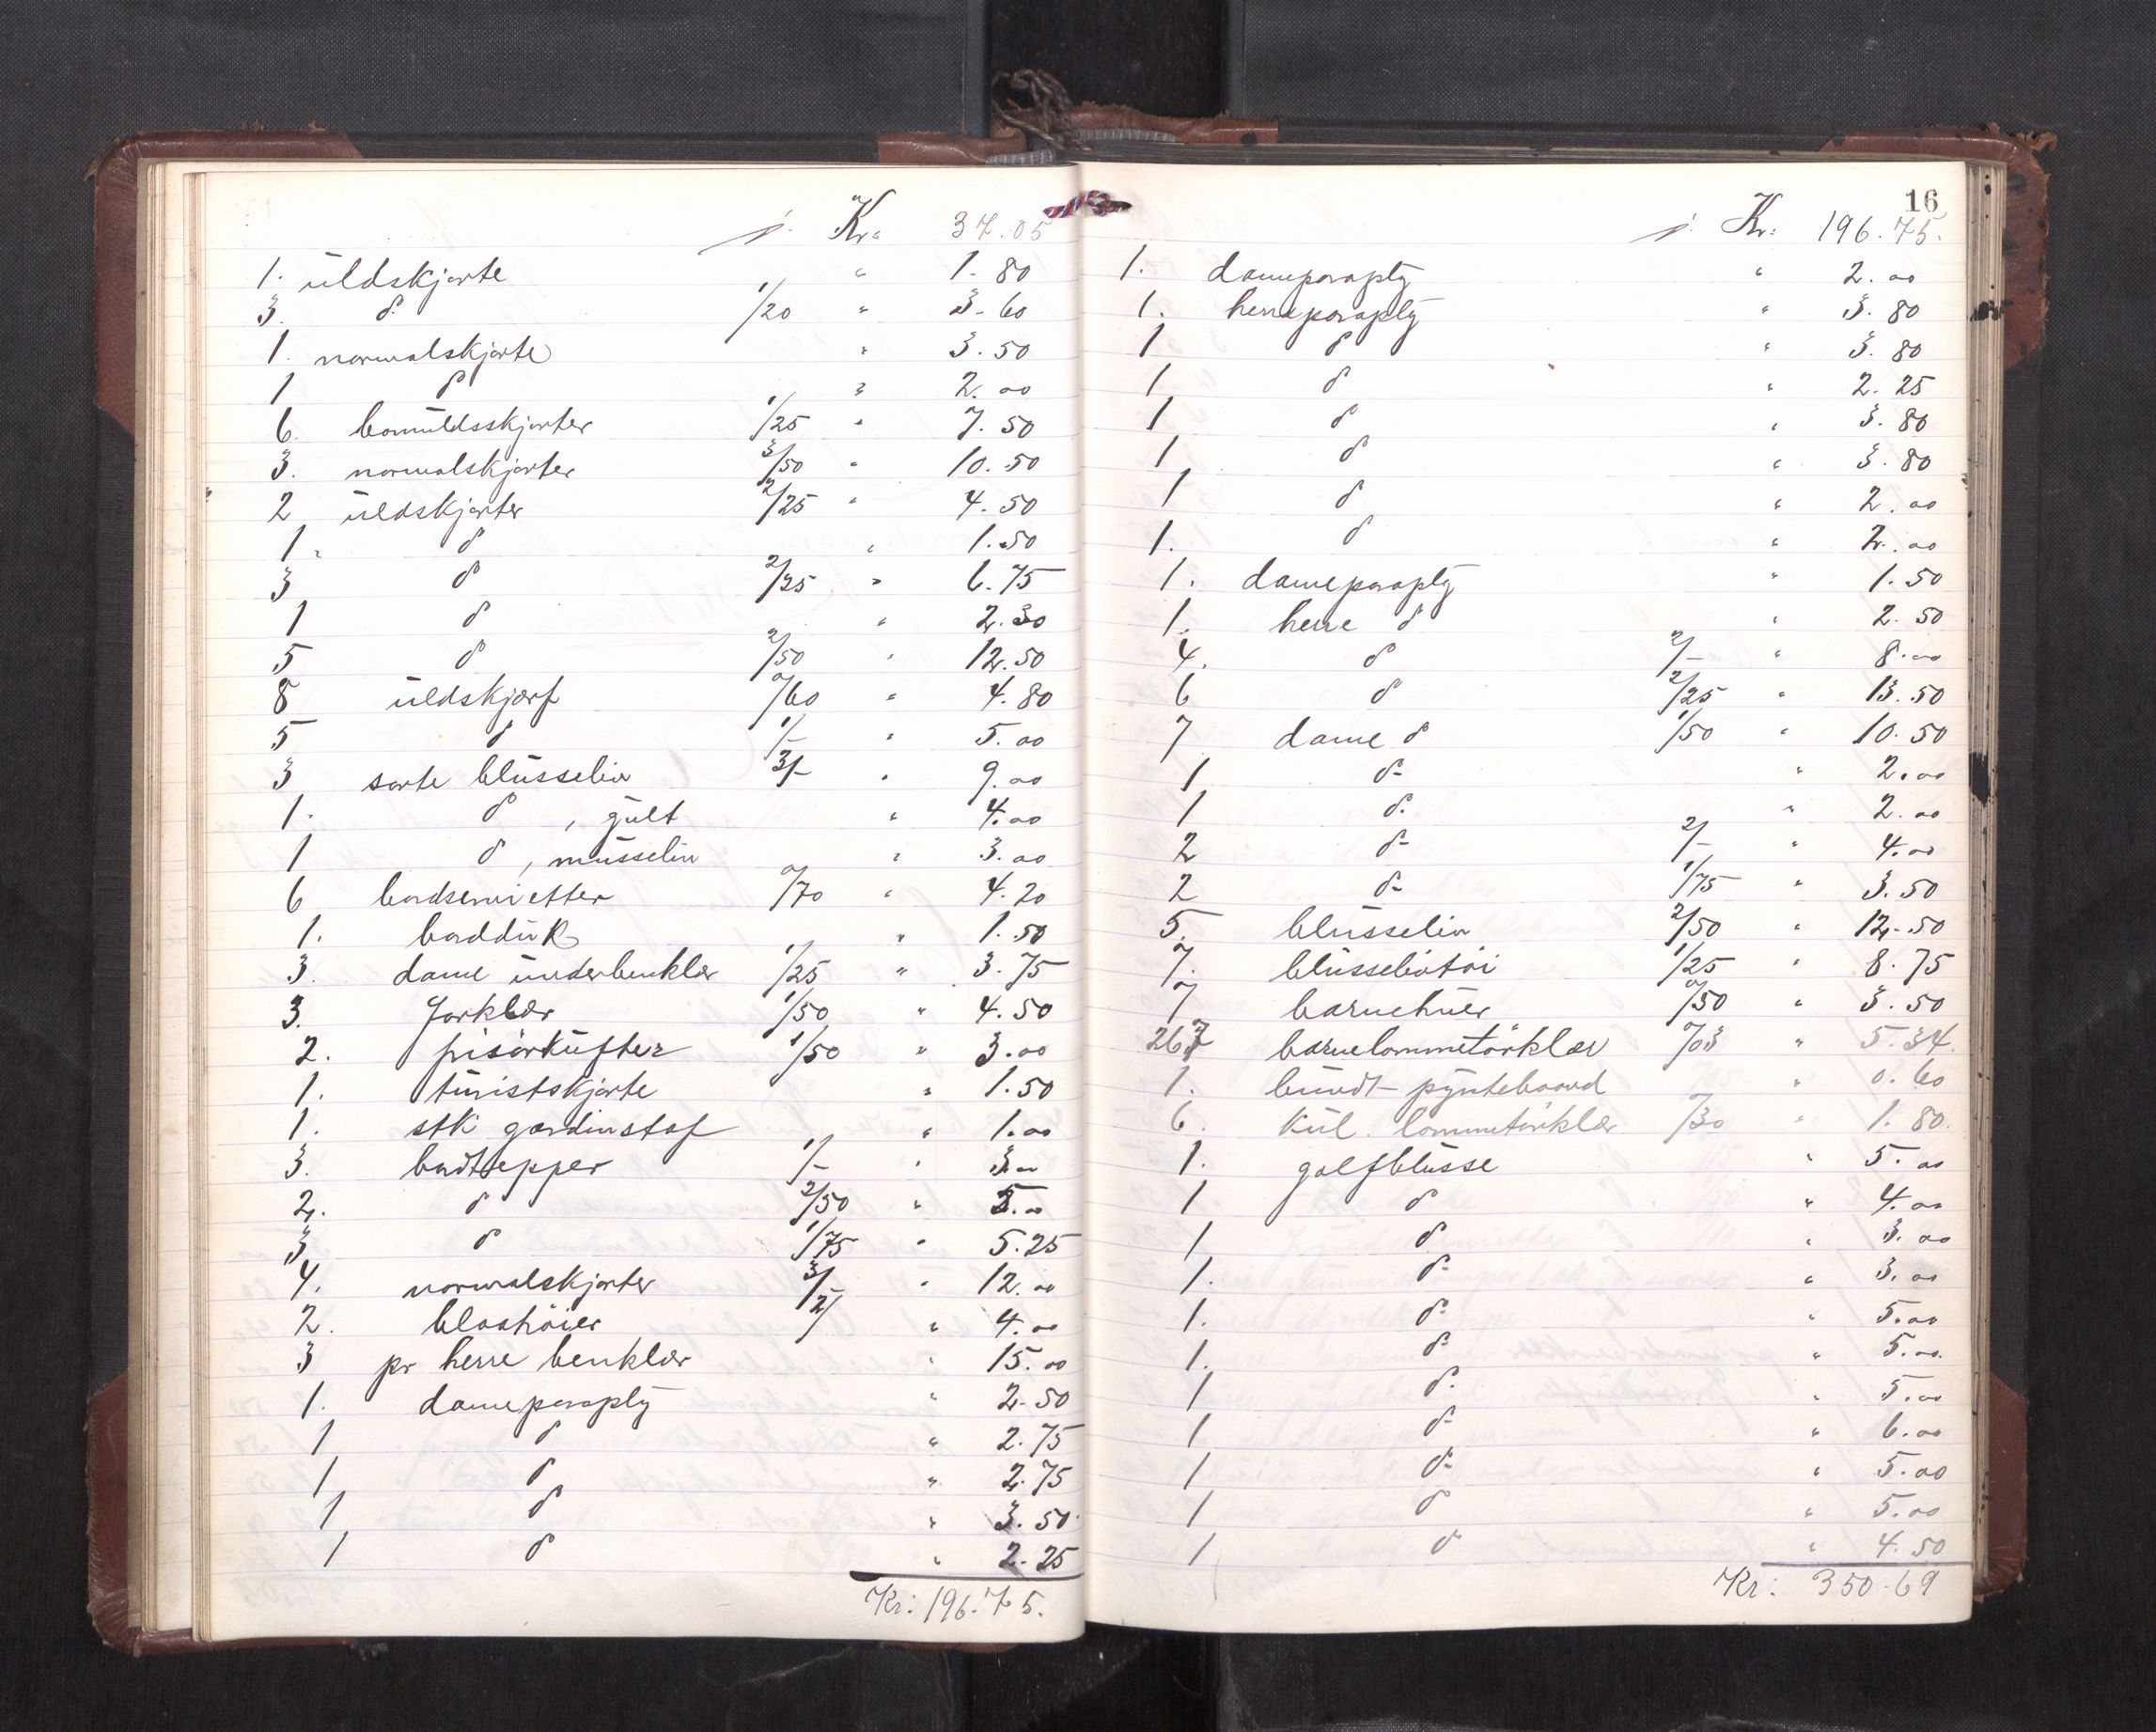 Kr: 37.05
1. uldskjorte " 1.80
3. do 1/20 " 3.60
1. normalskjorte " 3.50
1 do " 2.00
6. bomuldsskjorter 1/25 " 7.50
3. normalskjorter 3/50 " 10.50
2 uldskjorter 2/25 " 4.50
1. do " 1.50
3 do 2/25 " 6.75
1 do " 2.30
5 do 2/50 " 12.50
8 uldskjærf 0/60 " 4.80
5 do 1/- " 5.00
3 sorte blusseliv 3/- " 9.00
1. do, gult " 4.00
1 do, musselin " 3.00
6 bordservietter 0/70 " 4.20
1. bordduk " 1.50
3. dame underbenklær 1/25 " 3.75
3. forklær 1/50 " 4.50
2. frisørkufter 1/50 " 3.00
1. turistskjorte " 1.50
1. stk gardinstof " 1.00
3. bordtepper 1/- " 3.00
2. do 2/50 " 5.00
3 do 1/75 " 5.25
4. normalskjorter 3/- " 12.00
2. blaatrøier 2/ " 4.00
3 pr herre benklær " 15.00
1. dameparaply " 2.50
1 do " 2.75
1 do " 2.75
1 do " 3.50
1 do " 2.25
Kr: 196.75.
16
Kr: 196.75.
1. dameparaply " 2.00
1. herreparaply " 3.80
1 do " 3.80
1 do " 2.25
1 do " 3.80
1 do " 3.80
1 do " 2.00
1. do " 2.00
1. dameparaply " 1.50
1. herre do " 2.50
4. do 2/- " 8.00
6 do 2/25 " 13.50
7 dame do 1/50 " 10.50
1 do " 2.00
1 do " 2.00
2 do 2/- " 4.00
2 do 1/75 " 3.50
5. blusseliv 2/50 " 12.50
7. blusselivtøi 1/25 " 8.75
7 barnehuer 0/50 " 3.50
267 barnelommetørklær 0/03 " 5.34.
1. bundt pyntebaand " 0.60
6. kul. lommetørklær 0/30 " 1.80.
1. golfblusse " 5.00
1 do " 4.00
1 do " 3.00
1. do " 3.00
1. do " 5.00
1. do " 5.00.
1 do " 5.00
1 do " 6.00
1 do " 5.00
1 do " 5.00
1 do " 4.50
Kr: 350.69